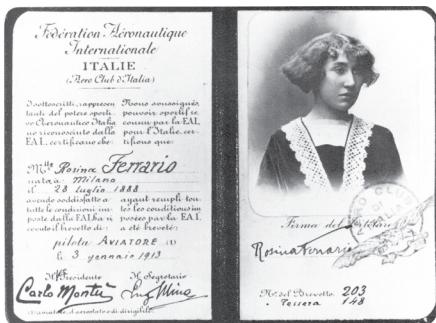 Fédération Aéronautique
Internationale
ITALIE
(Aero Club d'Italia)
I sottoscritti, rappresen
tanti del potere sporti
vo Aeronautico Italia
no riconosciuto dalla
F.A.I. certificano che:
Nous soussignés,
pouvoir sportif re
connu par la F.A.I.
pour l'Italie, cer
tifions que:
M.lle Rosina Ferrario
nata a Milano
il 28 luglio 1888
avendo soddisfatto a
tutte le condizioni im
poste dalla F.A.I. ha ri
cevuto il brevetto di:
ayant rempli tou
tes les conditions im
posées par la F.A.I.
a été breveté:
pilota AVIATORE (1)
le 3 gennaio 1913
Il Presidente
Il Segretario
Carlo Montù
(1) Aviatore, d'aerostato o di dirigibile.
Firma del titolare
Rosina Ferrario
N.o del Brevetto 203
" Tessera 148